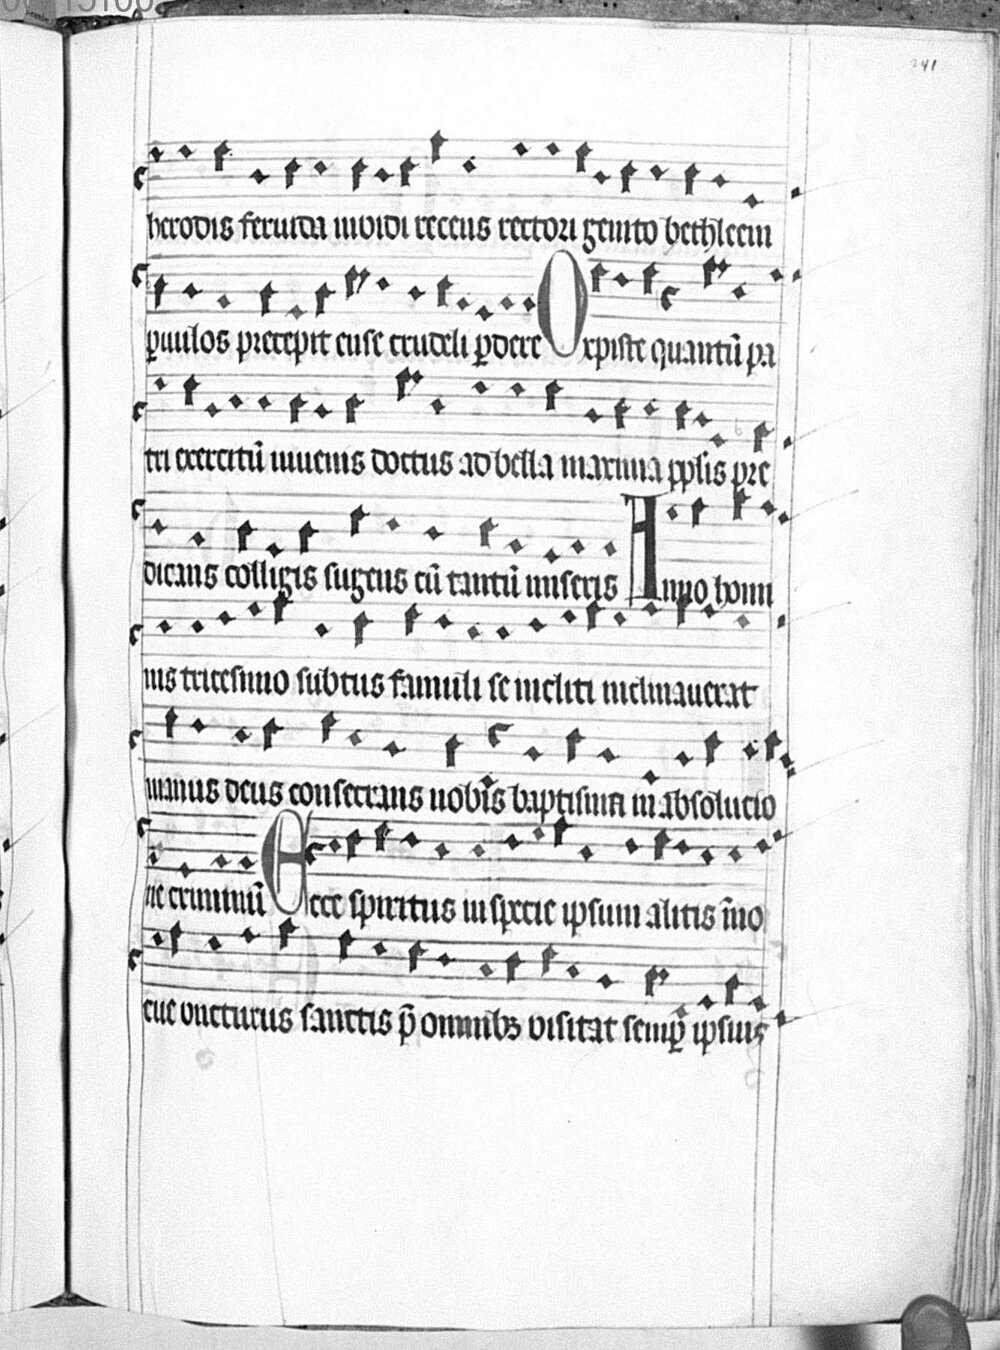 241
herodis feruida inuidi recens rectori genito bethleem
ꝑuulos precepit ense crudeli ꝑdere O xpiste quantũ pa
tri exercitũ iuuenis doctus ad bella maxima pplis pre
dicans colligis sugens cũ tantũ miseris Anno homi
nis tricesimo subtus famuli se incliti inclinauerat
manus deus consecrans nobis baptisma in absolucio
ne criminũ Ecce spiritus in specie ipsum alitis ĩno
cue uncturus sanctis p̃ omnibꝫ uisitat semꝑ ipsius